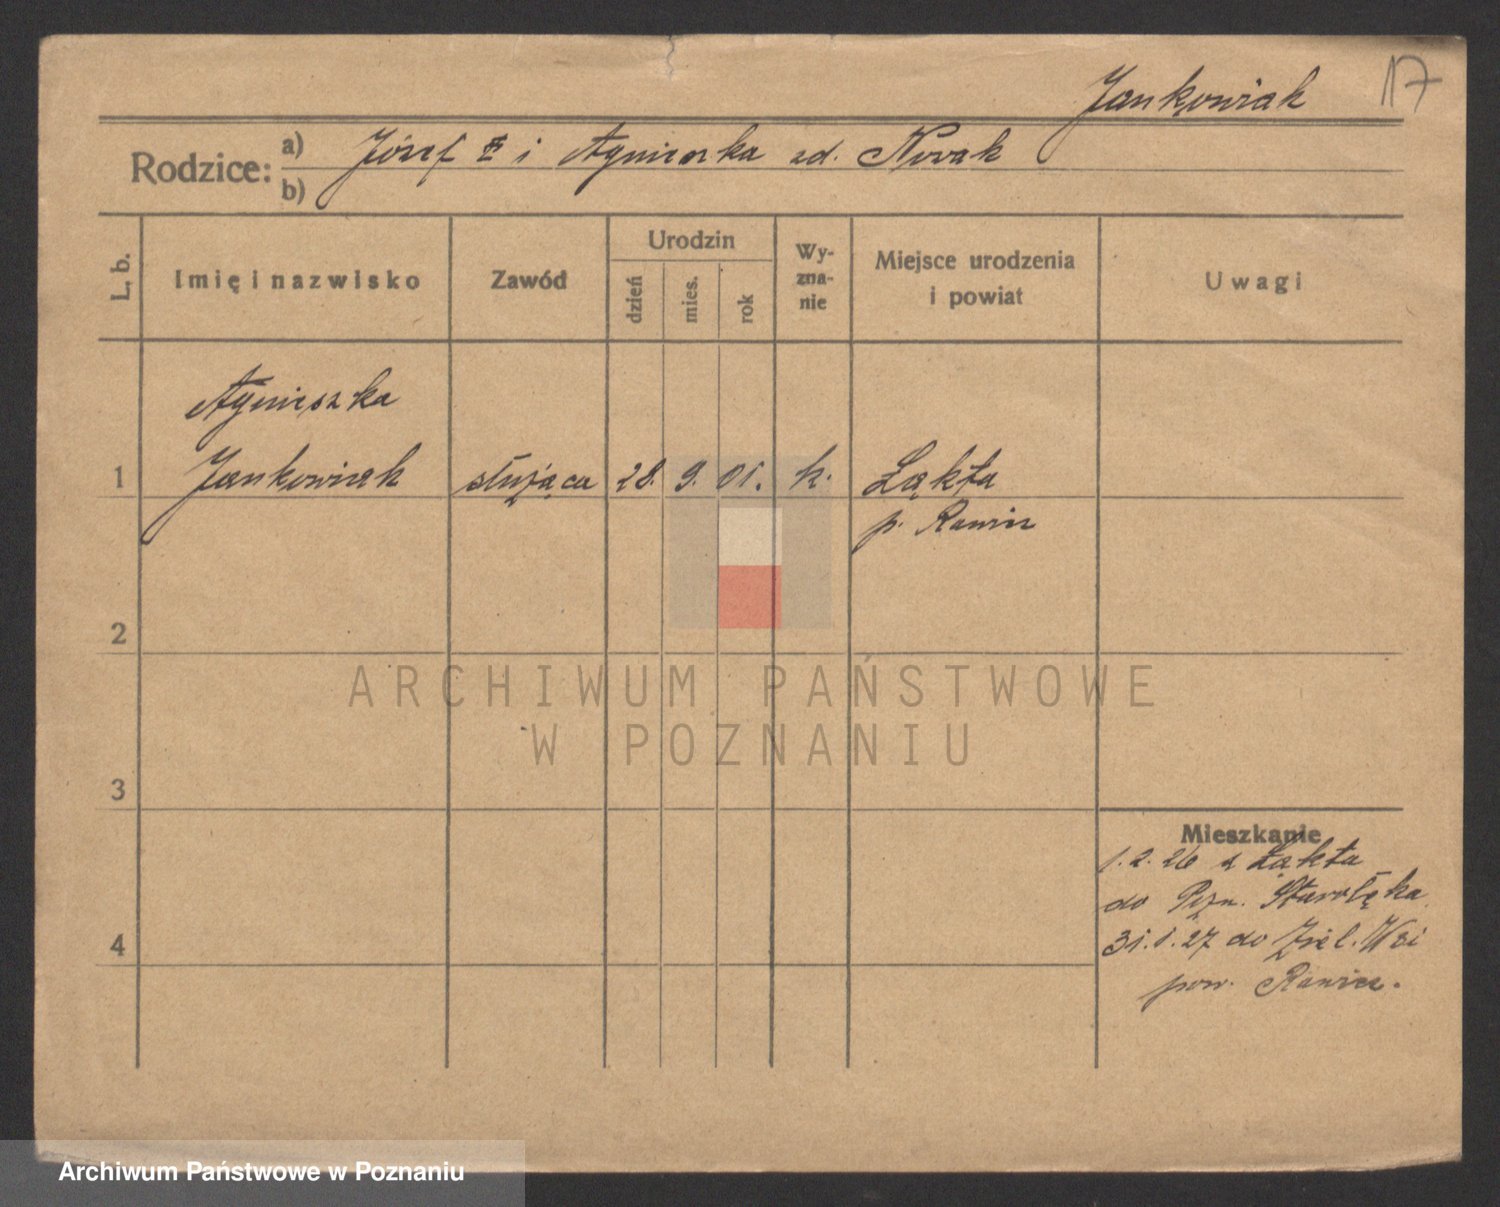 Jankowiak 17
Rodzice: a) Józef i Agnieszka zd. Novak
b)
L. b. Imię i nazwisko Zawód Urodzin dzień mies. rok Wyznanie Miejsce urodzenia i powiat Uwagi
Agnieszka
1 Jankowiak służąca 28. 9. 01. k. Łąkta
p. Rawicz
2
ARCHIWUM PAŃSTWOWE
W POZNANIU
3
Mieszkanie
1.2.26 z Łąkta
do Pozn. Starołęka
4 31.1.27 do Ziel. Wsi
pow. Rawicz.
Archiwum Państwowe w Poznaniu